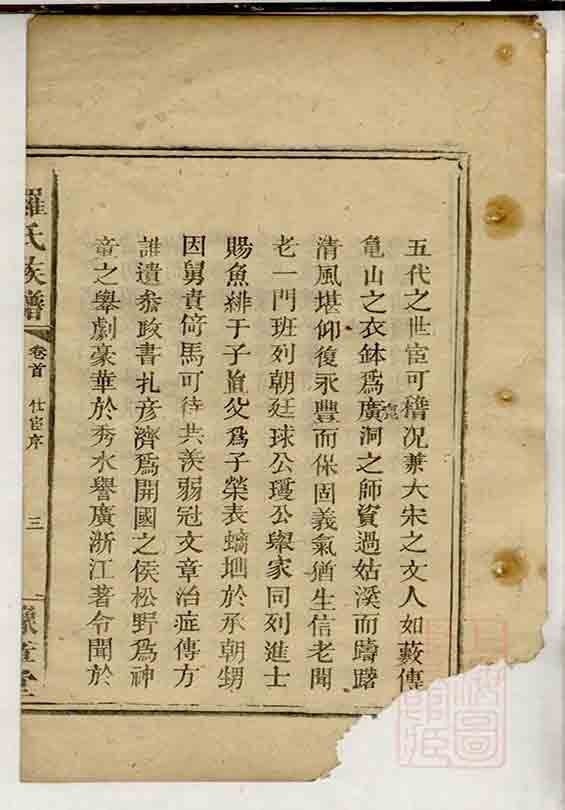 五代之世宦可稽况兼大宋之文人如藪傳
龜山之衣鉢為廣洞之師資過姑溪而躊躇
清風堪仰復永豐而保固義氣猶生信老聞
老一門班列朝廷球公瓊公舉家同列進士
賜魚緋于子貴父為子榮表螭坳於承朝甥
因舅貴倚馬可待共羨弱冠文章治症傳方
誰遺叅政書扎彥濟為開國之侯松野為神
童之舉劇豪華於秀水譽廣浙江著令聞於
羅氏族譜
卷首 仕宦序
三
豫章堂